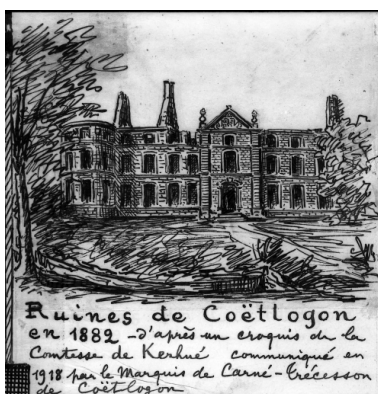 Ruines de Coëtlogon
en 1882 - d'après un croquis de la
Comtesse de Kerhué communiqué en
1918 par le Marquis de Carné-Trécesson
de Coëtlogon